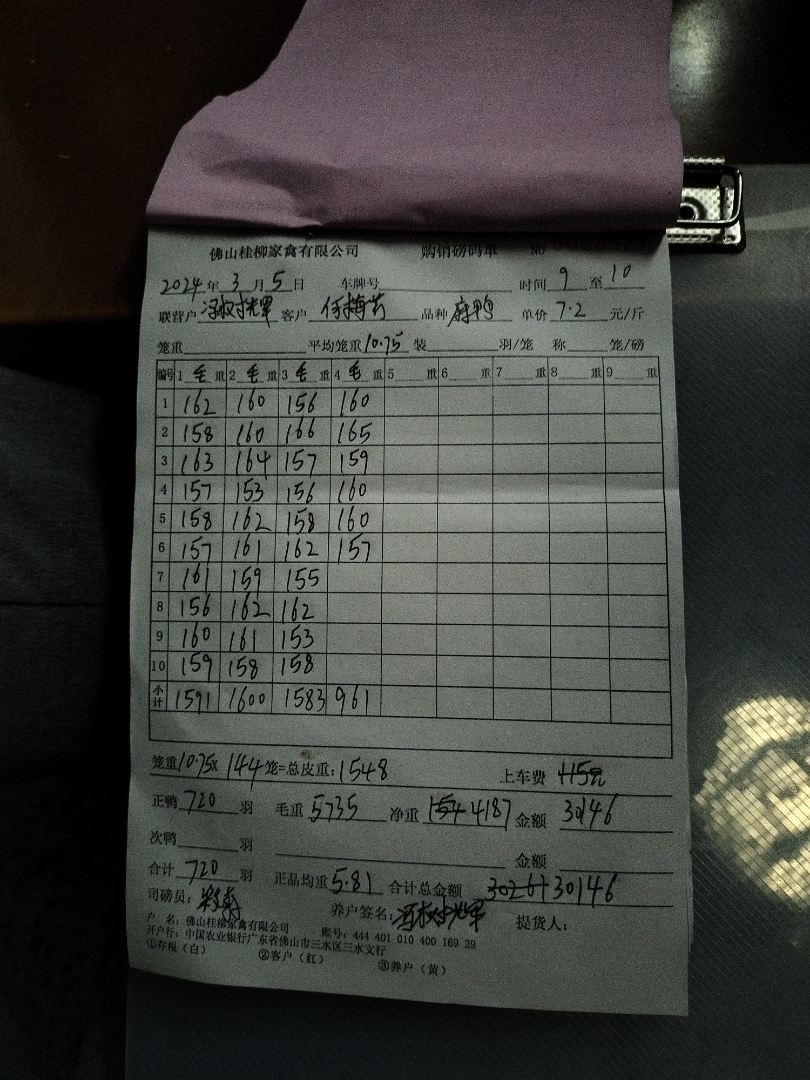 佛山桂柳家禽有限公司 购销磅码单 NO
2024年 3月 5日 车牌号 时间 9 至 10
联营户 客户 品种 麻鸭 单价 7.2 元/斤
笼重 平均笼重 10.75 装 羽/笼 称 笼/磅
编号 1 毛 重 2 毛 重 3 毛 重 4 毛 重 5 重 6 重 7 重 8 重 9 重
1 162 160 156 160
2 158 160 166 165
3 163 164 157 159
4 157 153 156 160
5 158 162 158 160
6 157 161 162 157
7 161 159 155
8 156 162 162
9 160 161 153
10 159 158 158
小计 1591 1600 1583 961
笼重 10.75x 144 笼=总皮重: 1548 上车费 +15元
正鸭 720 羽 毛重 5735 净重 154 4187 金额 30146
次鸭 羽 金额
合计 720 羽 正品均重 5.81 合计总金额 30261 30146
司磅员: 养户签名: 提货人:
户 名: 佛山桂柳家禽有限公司 账号: 444 401 010 400 169 29
开户行: 中国农业银行广东省佛山市三水区三水支行
①存根（白） ②客户（红） ③养户（黄）